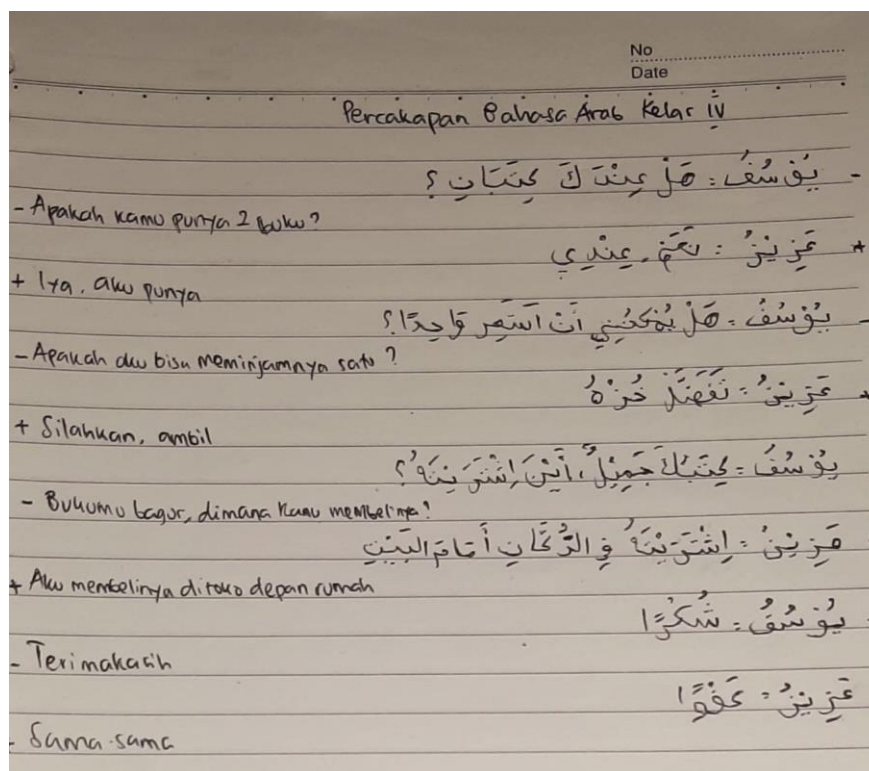 No
Date
Percakapan Bahasa Arab Kelas IV
- يُوْسُفُ : هَلْ عِنْدَكَ كِتَبَانِ ؟
- Apakah kamu punya 2 buku?
+ عَزِيْزُ : نَعَمْ، عِنْدِي
+ Iya, aku punya
- يُوْسُفُ : هَلْ يُمْكِنُنِي أَنْ أَسْتَعِر وَاحِدًا؟
- Apakah aku bisa meminjamnya satu?
+ عَزِيْزُ : تَفَضَّلْ خُذْهُ
+ Silahkan, ambil
يُوْسُفُ : كِتَبُكَ جَمِيْلٌ، أَيْنَ اِشْتَرَيْتَهُ؟
- Bukumu bagus, dimana kamu membelinya?
عَزِيْزُ : اِشْتَرَيْتَهُ فِي الدُّكَّانِ أَمَامَ الْبَيْتِ
+ Aku membelinya ditoko depan rumah
يُوْسُفُ : شُكْرًا
- Terimakasih
عَزِيْزُ : عَفْوًا
- Sama-sama